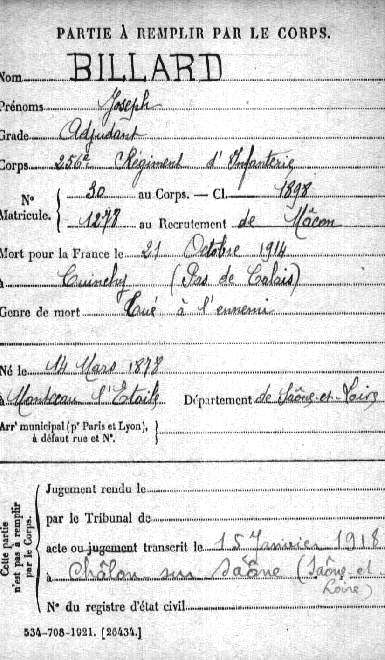 PARTIE À REMPLIR PAR LE CORPS.
Nom BILLARD
Prénoms Joseph
Grade Adjudant
Corps 256e Régiment d'Infanterie
N° Matricule. { 30 au Corps. — Cl. 1898
1278 au Recrutement de Mâcon
Mort pour la France le 21 Octobre 1914
à Cuinchy (Pas de Calais)
Genre de mort Tué à l'ennemi
Né le 14 Mars 1878
à Montceau l'Etoile Département de Saône-et-Loire
Arrt municipal (pr Paris et Lyon), à défaut rue et N°.
Cette partie n'est pas à remplir par le Corps.
Jugement rendu le
par le Tribunal de
acte ou jugement transcrit le 15 Janvier 1918
à Châlon sur Saône (Saône et Loire)
N° du registre d'état civil
534-708-1921. [26434.]